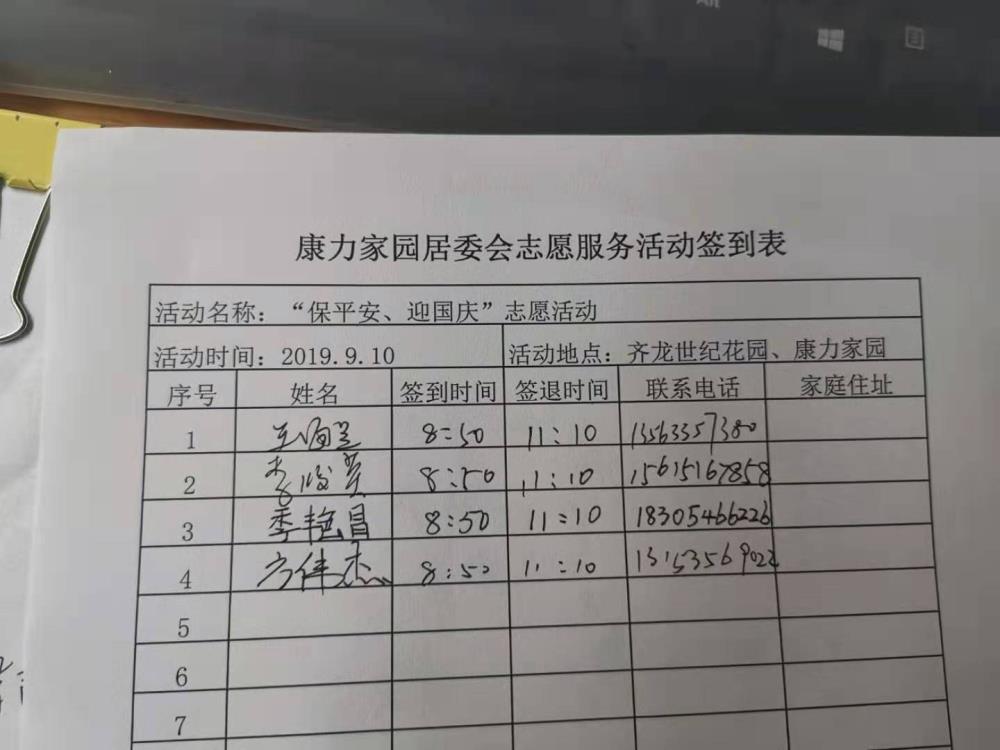 康力家园居委会志愿服务活动签到表
活动名称：“保平安、迎国庆”志愿活动
活动时间：2019.9.10 活动地点：齐龙世纪花园、康力家园
序号 姓名 签到时间 签退时间 联系电话 家庭住址
1 8:50 11:10 13563357380
2 李俊贤 8:50 11:10 15615167858
3 季艳昌 8:50 11:10 18305466226
4 方伟杰 8:50 11:10 13153569022
5
6
7